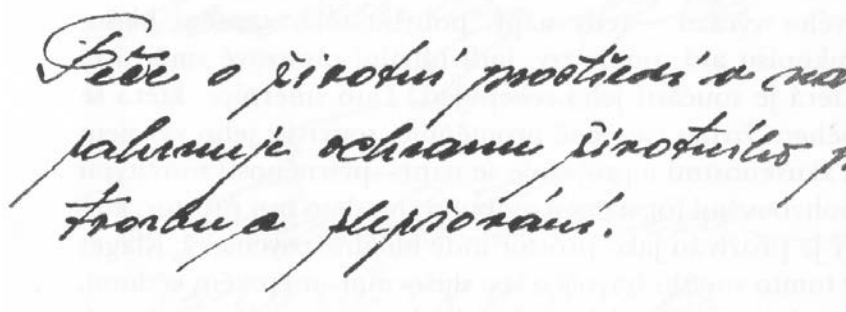 Péče o životní prostředí
zahrnuje ochranu životního
tvorbu a zlepšování.